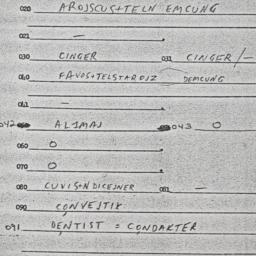 020 AROJSCUS+TELN EMCUNG
021 —
030 CINGER 031 CINGER/—
040 FAVOS+TELSTAROJZ DEMCUNG
041 —
042 ALIMAJ 043 O
060 O
070 O
080 CUVIS+N DICEJNER 081 —
090 CONVEJTIX
091 DENTIST = CONDAKTER